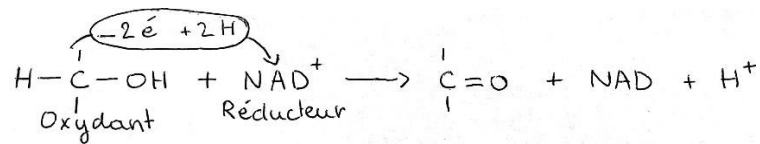 – 2 é + 2 H
H – C – OH + NAD⁺ ⟶ C = O + NAD + H⁺
Oxydant Réducteur